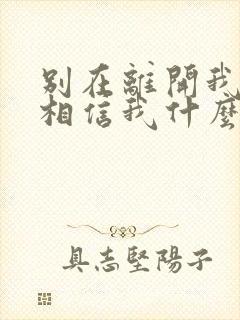 別在離開我
相信我什麼
具志堅陽子